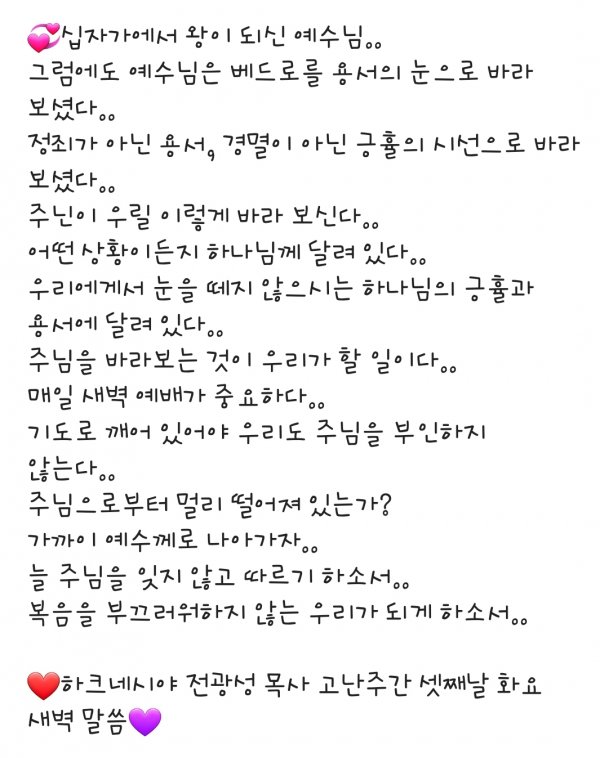 💞십자가에서 왕이 되신 예수님。。
그럼에도 예수님은 베드로를 용서의 눈으로 바라
보셨다。。
정죄가 아닌 용서, 경멸이 아닌 긍휼의 시선으로 바라
보셨다。。
주닌이 우릴 이렇게 바라 보신다。。
어떤 상황이든지 하나님께 달려 있다。。
우리에게서 눈을 떼지 않으시는 하나님의 긍휼과
용서에 달려 있다。。
주님을 바라보는 것이 우리가 할 일이다。。
매일 새벽 예배가 중요하다。。
기도로 깨어 있어야 우리도 주님을 부인하지
않는다。。
주님으로부터 멀리 떨어져 있는가?
가까이 예수께로 나아가자。。
늘 주님을 잊지 않고 따르기 하소서。。
복음을 부끄러워하지 않는 우리가 되게 하소서。。
❤️하크네시야 전광성 목사 고난주간 셋째날 화요
새벽 말씀💜